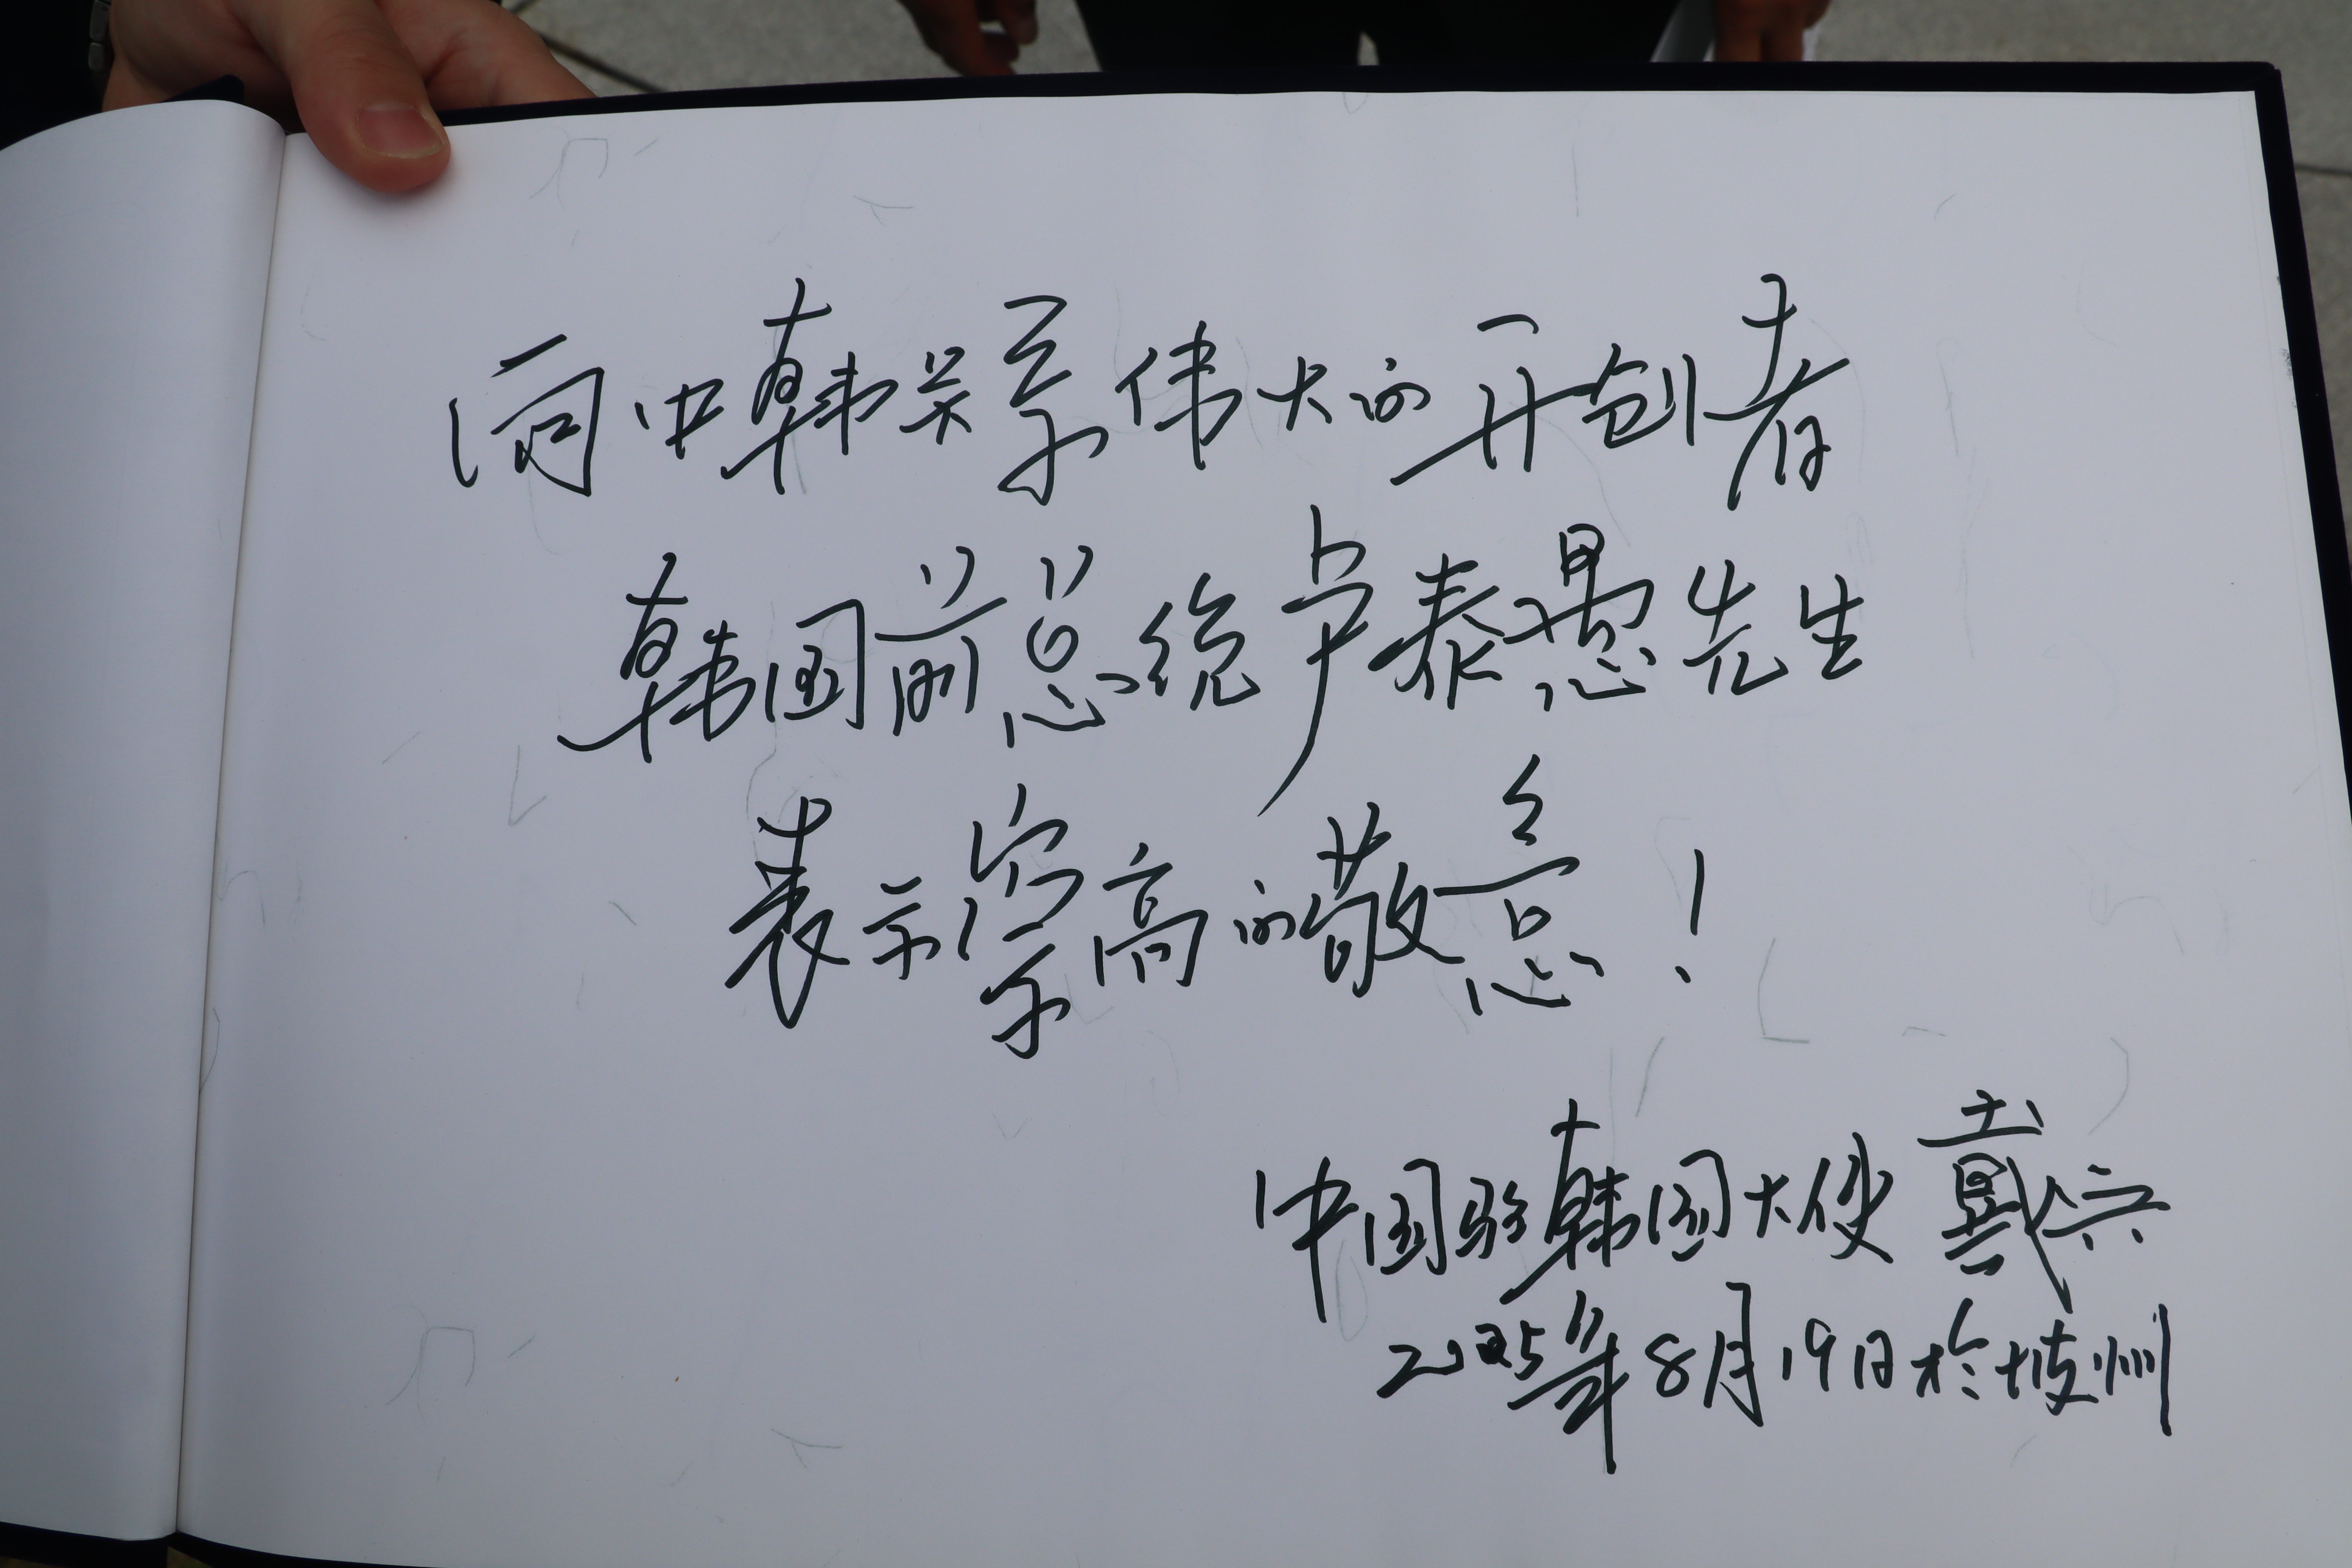 向中韩关系伟大的开创者
韩国前总统卢泰愚先生
表示崇高的敬意!
中国驻韩国大使 戴兵
2025年8月19日於坡州